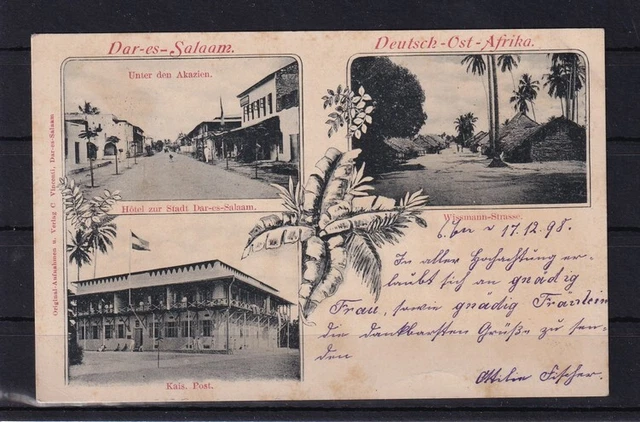 Dar-es-Salaam.
Deutsch-Ost-Afrika.
Unter den Akazien.
Hôtel zur Stadt Dar-es-Salaam.
Wissmann-Strasse.
Kais. Post.
Original-Aufnahmen u. Verlag C. Vincenti, Dar-es-Salaam
17.12.98.
In aller Hochachtung er-
laubt sich an gnädig
Frau, sowie gnädig Fräulein
die dankbarsten Grüße zu sen-
den
Ottilie Fischer.